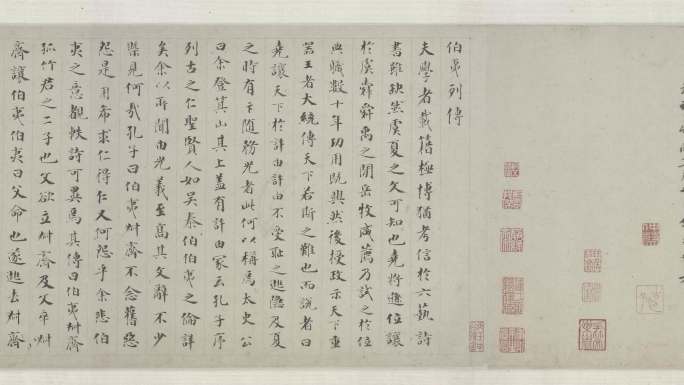 伯夷列傳
夫學者載籍極博猶考信於六藝詩
書雖缺然虞夏之文可知也堯將遜位讓
於虞舜舜禹之間岳牧咸薦乃試之於位
典職數十年功用既興然後授政示天下重
器王者大統傳天下若斯之難也而說者曰
堯讓天下於許由許由不受恥之逃隱及夏
之時有卞隨務光者此何以稱焉太史公
曰余登箕山其上蓋有許由冢云孔子序
列古之仁聖賢人如吳泰伯伯夷之倫詳
矣余以所聞由光義至高其文辭不少
槩見何哉孔子曰伯夷叔齊不念舊惡
怨是用希求仁得仁又何怨乎余悲伯
夷之意覩軼詩可異焉其傳曰伯夷叔齊
孤竹君之二子也父欲立叔齊及父卒叔
齊讓伯夷伯夷曰父命也遂逃去叔齊